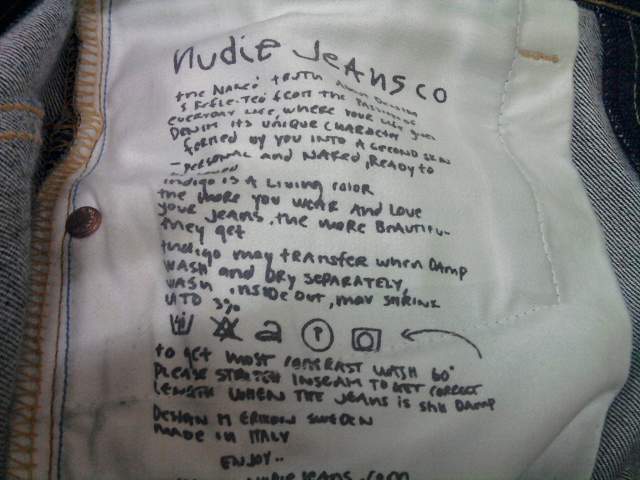 nudie JeAnsco
the NAKed tRUTH About Denim
is Refle-Ted from the
everyday life, where your life gives
Denim its unique character
formed by you into A second skin
- personal and Naked, Ready to
indigo is A Living color
the more you wear And Love
your JeAns. the more BeAutifu-
they get
Indigo may transfer when Damp
WASH and Dry sepARAtely,
WASH inside out, may shrink
UTD 3%
a P
to get most contrast wash 60°
please stretch inseam to get correct
length when the jeans is still Damp
Design M Erixon Sweden
made in Italy
ENJOY..